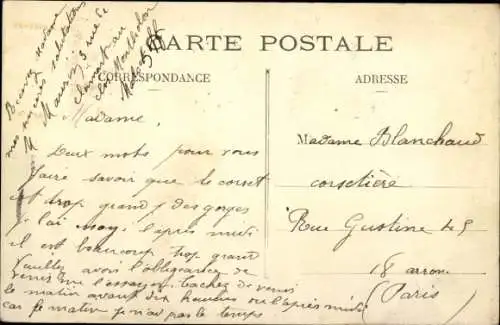 CARTE POSTALE
CORRESPONDANCE
ADRESSE
Madame,
Deux mots pour vous
faire savoir que le corset
est trop grand des gorges
j'ai l'après midi
il est beaucoup trop grand
Veuillez avoir l'obligeance de
venir me l'essayer tachez de venir
le matin avant dix heures ou l'après midi
car le matin je n'ai pas le temps
Recevez Madame
mes salutations
M Maurin 3 rue de
Madame Blanchaud
corsetière
Rue Gustine 45
18 arron
(Paris)